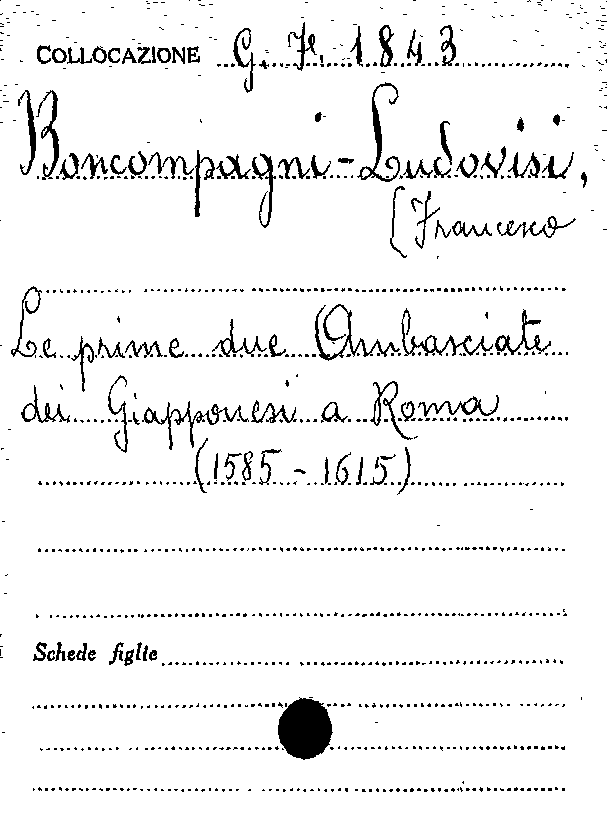 COLLOCAZIONE G. F. 1843
Boncompagni-Ludovisi,
[Francesco
Le prime due Ambasciate
dei Giapponesi a Roma
(1585 - 1615)
Schede figlie